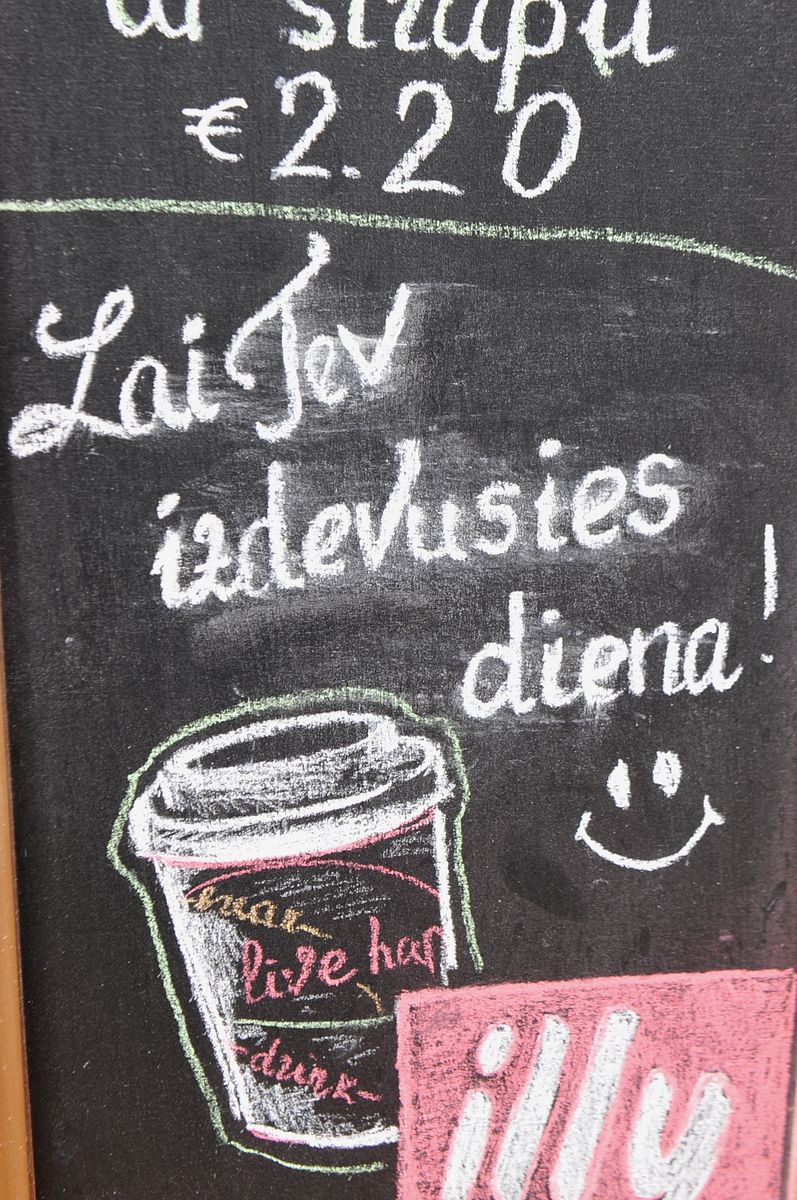 sīrupu
€2.20
Lai Tev
izdevusies
diena!
live hap
-drink-
illy